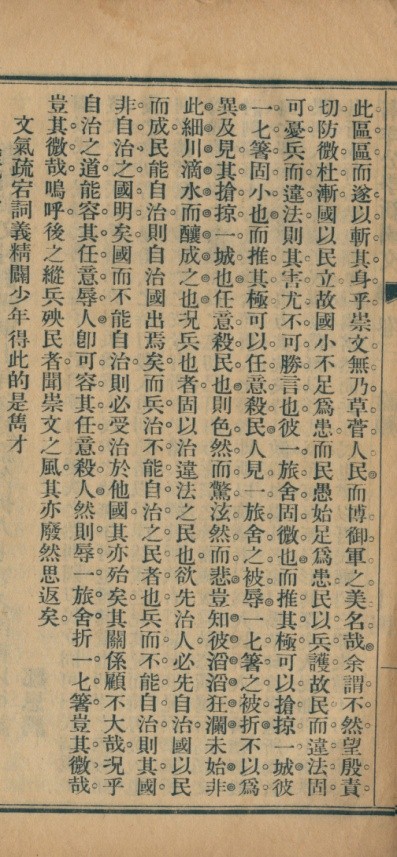 此區區而遂以斬其身乎崇文無乃草菅人民而博御軍之美名哉余謂不然望殷責
切防微杜漸國以民立故國小不足爲患而民愚始足爲患民以兵護故民而違法固
可憂兵而違法則其害尤不可勝言也彼一旅舍固微也而推其極可以搶掠一城彼
一七箸固小也而推其極可以任意殺民人見一旅舍之被辱一七箸之被折不以爲
異及見其搶掠一城也任意殺民也則色然而驚泫然而悲豈知彼滔滔狂瀾未始非
此細川滴水而釀成之也況兵也者固以治違法之民也欲先治人必先自治國以民
而成民能自治則自治國出焉矣而兵治不能自治之民者也兵而不能自治則其國
非自治之國明矣國而不能自治則必受治於他國其亦殆矣其關係顧不大哉況乎
自治之道能容其任意辱人卽可容其任意殺人然則辱一旅舍折一七箸豈其微哉
豈其微哉嗚呼後之縱兵殃民者聞崇文之風其亦廢然思返矣
文氣疏宕詞義精闢少年得此的是雋才